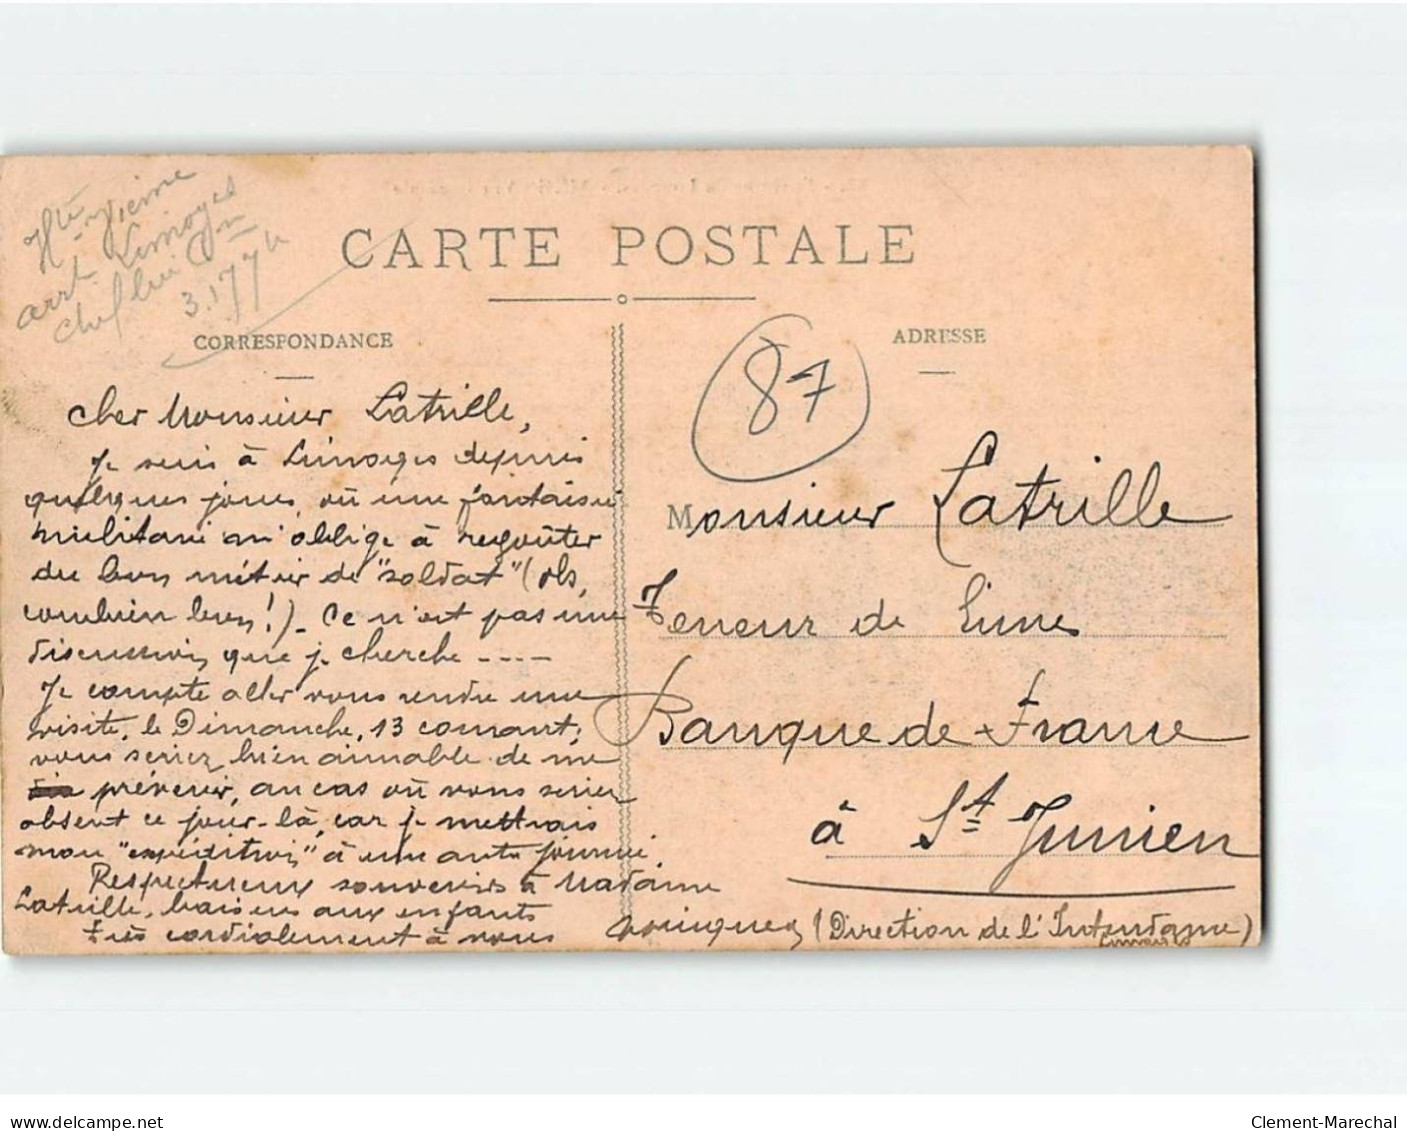 Hte Vienne
arrt Limoges
chef lieu Con
3.177 h
CARTE POSTALE
CORRESPONDANCE
ADRESSE
87
Cher Monsieur Latrille,
Je suis à Limoges depuis
quelques jours, où une fantaisie
militaire m'oblige à regoûter
du bon métier de "soldat" (oh,
combien bon!) - Ce n'est pas une
discussion que je cherche ----
Je compte aller vous rendre une
visite, le Dimanche, 13 courant;
vous seriez bien aimable de me
prévenir, au cas où vous seriez
absent ce jour-là, car je mettrais
mon "expédition" à une autre journée.
Respectueux souvenirs à Madame
Latrille, baisers aux enfants
très cordialement à vous
(Direction de l'Intendance)
Limoges
Monsieur Latrille
Teneur de Livres
Banque de France
à St Junien
www.delcampe.net
Clement-Marechal